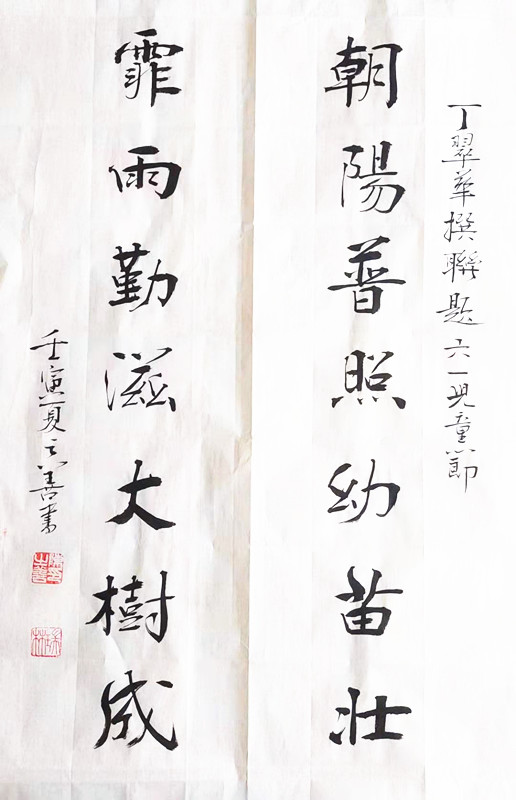 丁翠華撰聯題六一児童節
朝陽普照幼苗壯
霏雨勤滋大樹成
壬寅夏之善書